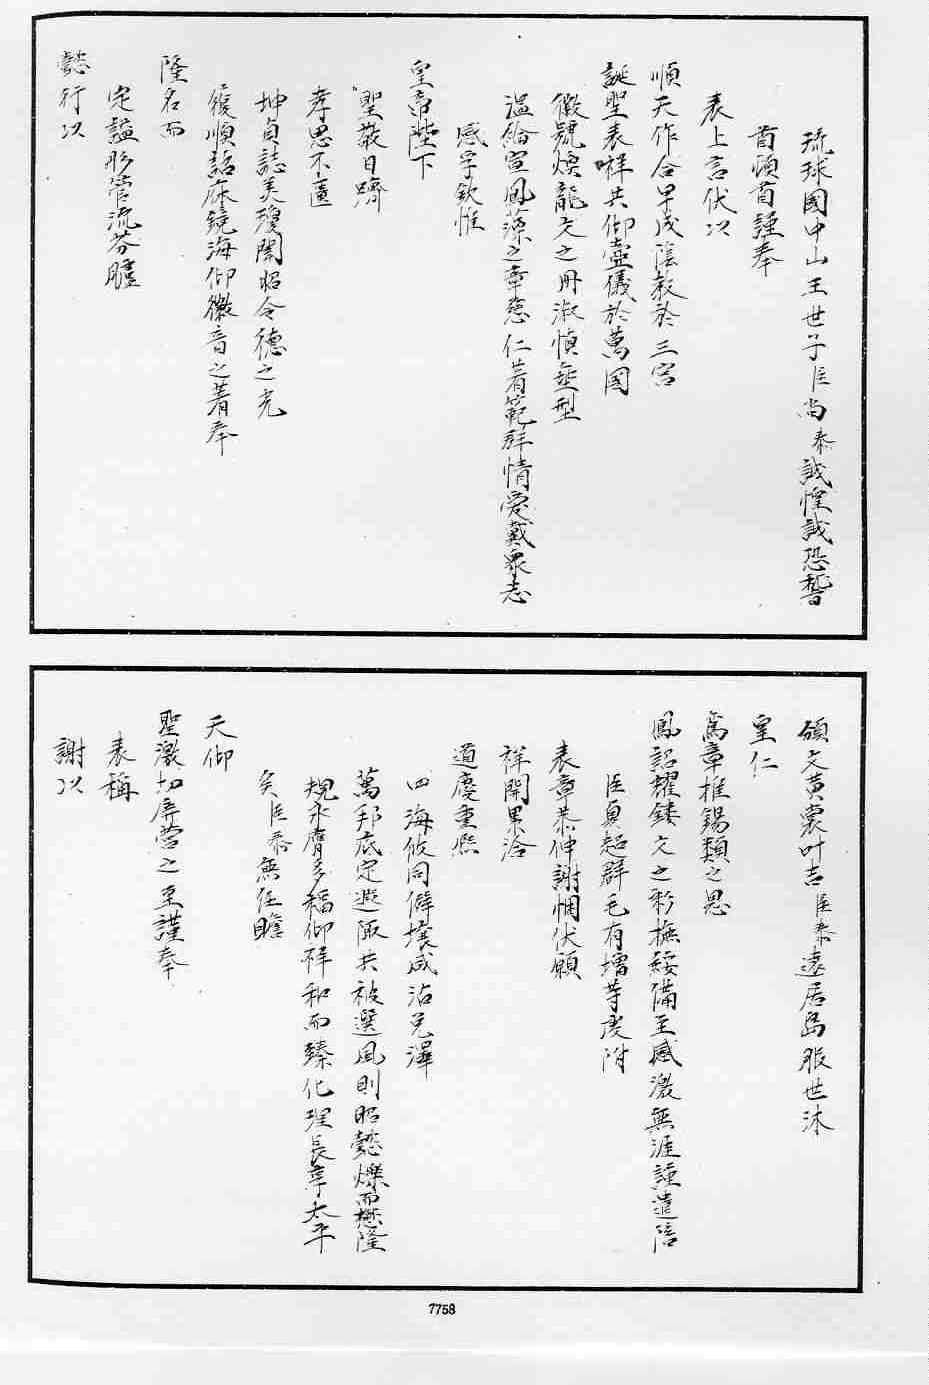 琉球國中山王世子臣尚泰誠惶誠恐稽
首頓首謹奉
表上言伏以
順天作合早成陰教於三宮
誕聖表祥共仰壼儀於萬國
徽號煥龍文之冊淑慎垂型
溫綸宣鳳藻之章慈仁著範群情愛戴衆志
感孚欽惟
皇帝陛下
聖敬日躋
孝思不匱
坤貞誌美瓊闈昭令德之光
履順詒庥鏡海仰徽音之著奉
隆名而
定謚彤管流芬臚
懿行以
頒文黃裳叶吉臣泰遠居島服世沐
皇仁
寫章推錫類之恩
鳳詔耀鏤文之彩撫綏備至感激無涯謹遣陪
臣員超群毛有增等虔附
表章恭伸謝悃伏願
祥開累洽
道慶重熙
四海攸同僻壤咸沾兌澤
萬邦底定遐陬共被巽風則昭懿爍而懋隆
規永膺多福仰祥和而臻化理長享太平
矣臣泰無任瞻
天仰
聖激切屏營之至謹奉
表稱
謝以
7758